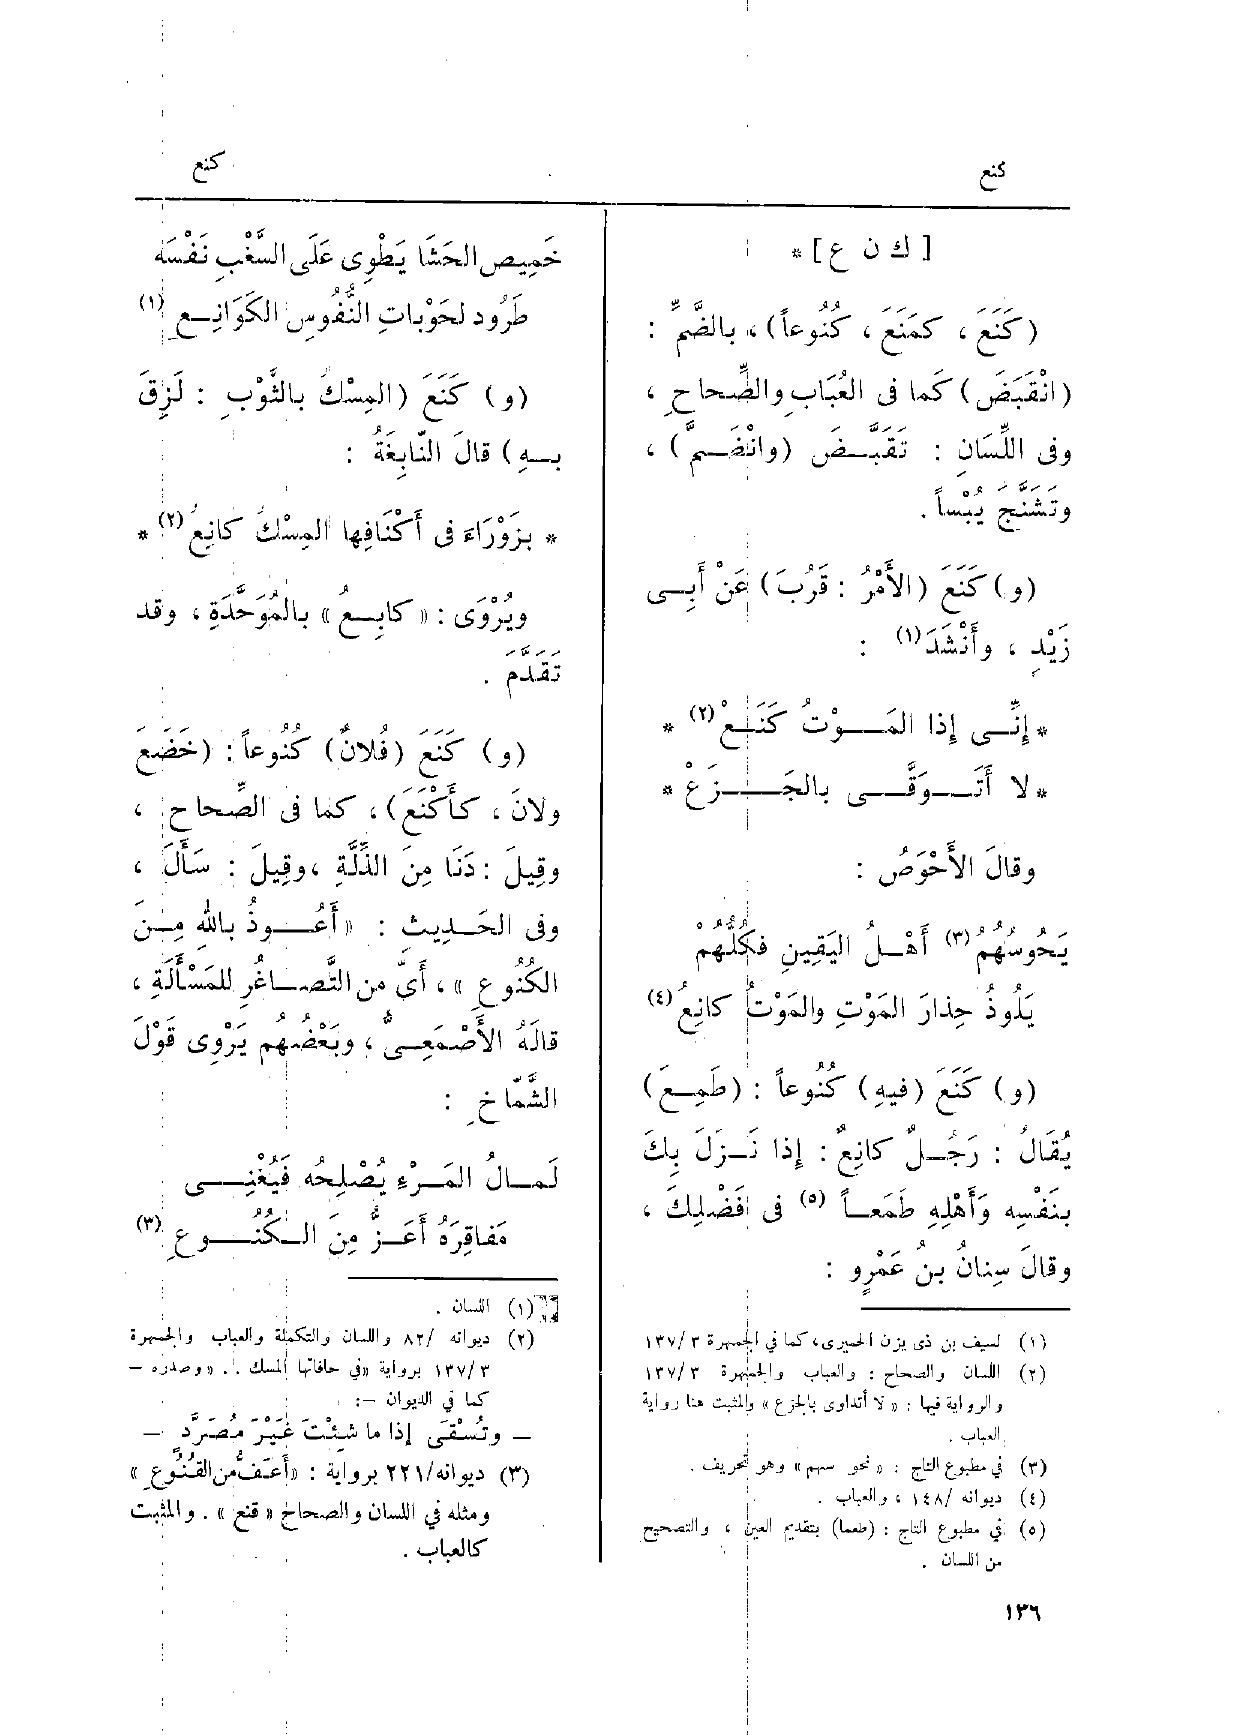 كنع
كنع
[ ك ن ع ] *
(كَنَعَ ، كمَنَعَ ، كُنُوعاً) ، بالضَّمِّ :
(انْقَبَضَ) كَما فى العُبَابِ والصِّحاحِ ،
وفى اللِّسَانِ : تَقَبَّــضَ (وانْضَــمَّ) ،
وتَشَنَّجَ يُبْساً .
(و) كَنَعَ (الأَمْرُ : قَرُبَ) عَنْ أَبِــى
زَيْدٍ ، وأَنْشَدَ(١) :
* إِنِّــى إِذا المَــوْتُ كَنَــعْ(٢) *
* لا أَتَــوَقَّــى بالجَــزَعْ *
وقالَ الأَحْوَصُ :
يَحُوسُهُم(٣) أَهْــلُ اليَقِينِ فكُلُّهُمْ
يَلُوذُ حِذارَ المَوْتِ والمَوْتُ كانِعُ(٤)
(و) كَنَعَ (فيهِ) كُنُوعاً : (طَمِــعَ)
يُقَالُ : رَجُــلٌ كانِعٌ : إِذا نَــزَلَ بِكَ
بنَفْسِه وَأَهْلِهِ طَمَعــاً (٥) فى فَضْلِكَ ،
وقالَ سِنانُ بنُ عَمْرٍو :
(١) لسيف بن ذى يزن الحميرى، كما في الجمهرة ٣ /١٣٧
(٢) اللسان والصحاح : والعباب والجمهرة ٣ /١٣٧
والرواية فيها : « لا أتداوى بالجزع » والمثبت هنا رواية
العباب .
(٣) في مطبوع التاج : « نحو سهم » وهو تحريف .
(٤) ديوانه /١٤٨ ، والعباب .
(٥) في مطبوع التاج : (طعما) بتقديم العين ، والتصحيح
من اللسان .
١٣٦
خَمِيص الحَشَا يَطْوِى عَلَى السَّغْبِ نَفْسَه
طَرُود لحَوْباتِ النُّفُوسِ الكَوَانِــعِ (١)
(و) كَنَعَ (المِسْكُ بالثَّوْبِ : لَزِقَ
بــهِ) قالَ النّابِغَةُ :
* بزَوْرَاءَ فى أَكْنَافِها المِسْكُ كانِعُ(٢) *
ويُرْوَى : « كابِــعُ » بالمُوَحَّدَةِ ، وقد
تَقَدَّم .
(و) كَنَعَ (فُلانٌ) كُنُوعاً : (خَضَعَ
ولانَ ، كأَكْنَعَ) ، كما فى الصِّحاحِ ،
وقِيلَ : دَنَا مِنَ الذِّلَّةِ ، وقِيلَ : سَأَلَ ،
وفى الحَــدِيثِ : « أَعُــوذُ باللهِ مِــنَ
الكُنُوعِ » ، أَىْ من التَّصــاغُرِ للمَسْأَلَةِ ،
قالَهُ الأَصْمَعِــىُّ ، وبَعْضُهُم يَرْوِى قَوْلَ
الشَّمّاخِ :
لَمــالُ المَــرْءِ يُصْلِحُه فَيُغْنِــى
مَفاقِرَهُ أَعَــزُّ مِنَ الــكُنُــوعِ (٣)
(١) اللسان .
(٢) ديوانه /٨٢ واللسان والتكملة والعباب والجمهرة
٣ /١٣٧ برواية «في حافاتها المسك . . » وصدره –
كما في الديوان – :
– وتُسْقَى إذا ما شِئْتَ غَيْرَ مُصَرَّدٍ –
(٣) ديوانه/٢٢١ برواية : «أعَفُّ من القُنُوعِ»
ومثله في اللسان والصحاح « قنع » . والمثبت
كالعباب .